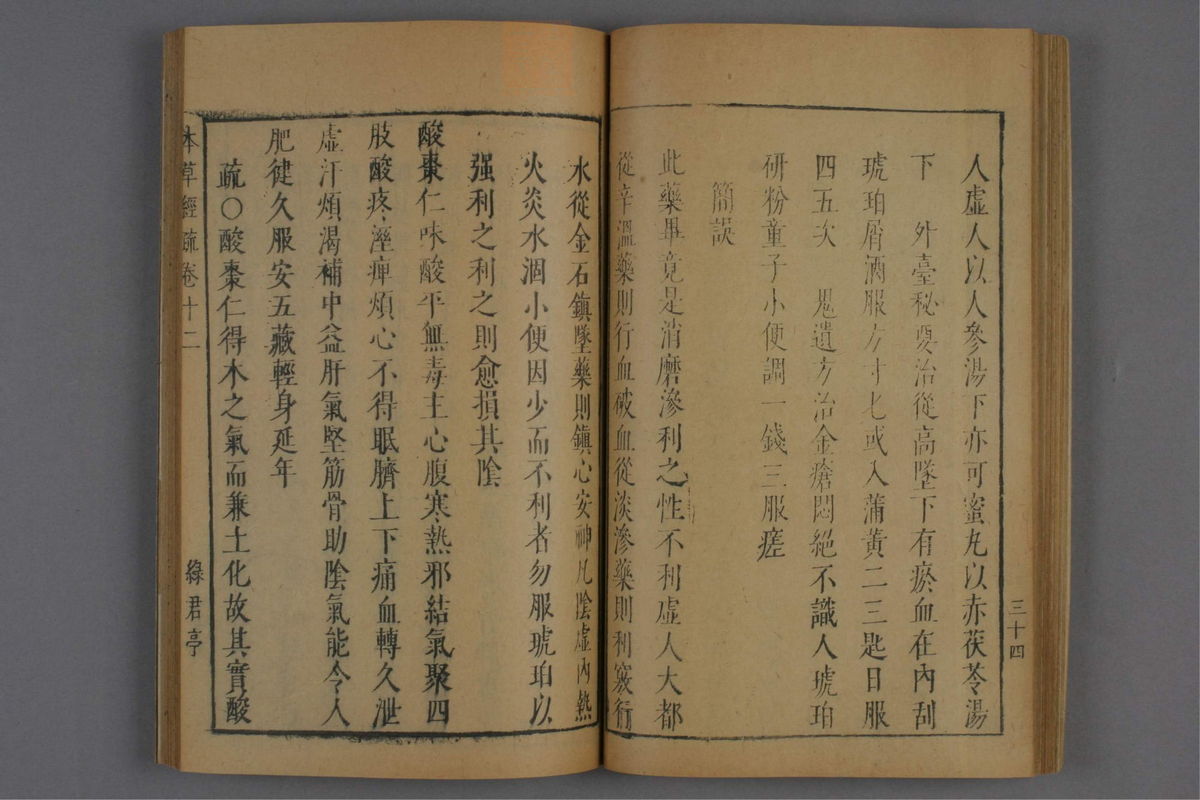 三十四
人虛人以人參湯下亦可蜜丸以赤茯苓湯
下　外臺秘要治從高墜下有瘀血在內刮
琥珀屑酒服方寸七或入蒲黃二三匙日服
四五次　鬼遺方治金瘡悶絕不識人琥珀
研粉童子小便調一錢三服瘥
簡誤
此藥畢竟是消磨滲利之性不利虛人大都
從辛溫藥則行血破血從淡滲藥則利竅行
水從金石鎮墜藥則鎮心安神凡陰虛內熱
火炎水涸小便因少而不利者勿服琥珀以
强利之利之則愈損其陰
酸棗仁味酸平無毒主心腹寒熱邪結氣聚四
肢酸疼溼痺煩心不得眠臍上下痛血轉久泄
虛汗煩渴補中益肝氣堅筋骨助陰氣能令人
肥健久服安五藏輕身延年
疏○酸棗仁得木之氣而兼土化故其實酸
本草經疏卷十二　綠君亭